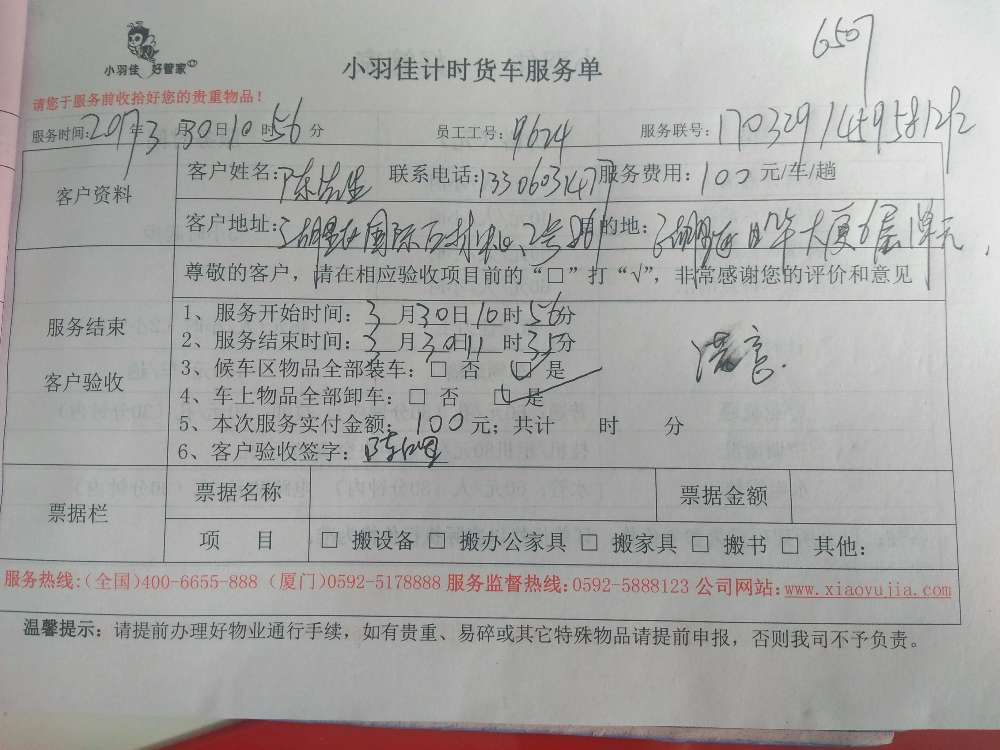 6507
小羽佳 好管家
小羽佳计时货车服务单
请您于服务前收拾好您的贵重物品！
服务时间: 2017年3月30日10时56分 员工工号: 9624 服务联号:
客户资料 客户姓名: 陈 联系电话: 服务费用: 100元/车/趟
客户地址: 国际石材中心2号 目的地: 大厦6层1单元
尊敬的客户，请在相应验收项目前的“□”打“√”，非常感谢您的评价和意见
服务结束
客户验收
1、服务开始时间: 3月30日10时56分
2、服务结束时间: 3月30日11时35分
3、候车区物品全部装车: □ 否 □ 是
4、车上物品全部卸车: □ 否 □ 是
满意.
5、本次服务实付金额: 100元; 共计 时 分
6、客户验收签字: 陈
票据栏 票据名称 票据金额
项 目 □ 搬设备 □ 搬办公家具 □ 搬家具 □ 搬书 □ 其他:
服务热线:(全国)400-6655-888 (厦门)0592-5178888 服务监督热线:0592-5888123 公司网站:www.xiaoyujia.com
温馨提示: 请提前办理好物业通行手续，如有贵重、易碎或其它特殊物品请提前申报，否则我司不予负责。